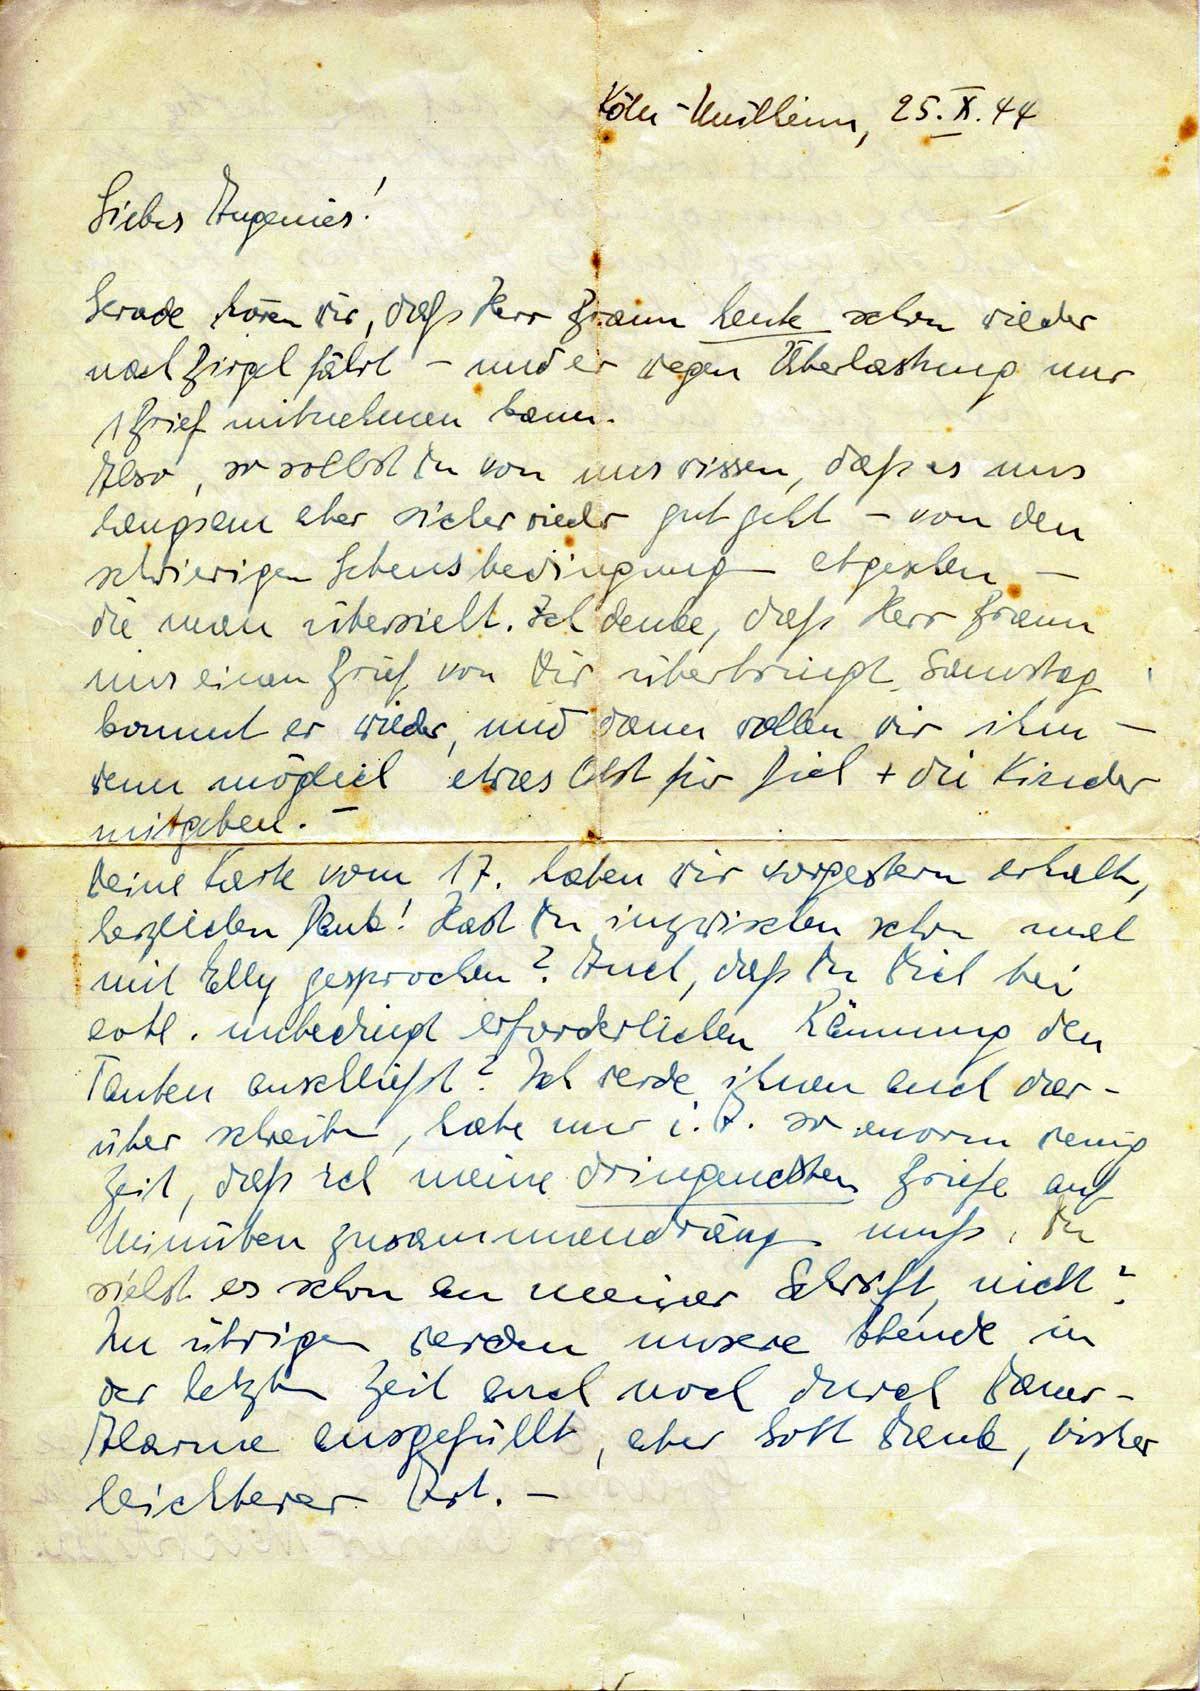 Köln-Mülheim, 25.X.44
Liebes Eugenies!
Gerade hören wir, daß Herr Braun heute schon wieder
nach fährt – und er wegen Überlastung nur
1 Brief mitnehmen kann.
Also, so sollst Du von uns wissen, daß es uns
langsam aber sicher wieder gut geht – von den
schwierigen Lebensbedingung abgesehen –
die man übersieht. Ich denke, daß Herr Braun
uns einen Brief von Dir überbringt. Samstag
kommt er wieder, und dann wollen wir ihm –
wenn möglich etwas Obst für Dich + die Kinder
mitgeben. –
Deine Karte vom 17. haben wir vorgestern erhalt,
herzlichen Dank! Hast Du inzwischen schon mal
mit Elly gesprochen? Auch, daß Du Dich bei
evtl. unbedingt erforderlichen Räumung den
Tanten anschließt? Ich werde ihnen auch dar-
über schreiben, habe nur i. A. so enorm wenig
Zeit, daß ich meine dringendsten Briefe auf
Minuten zusammendräng muß. Du
siehst es schon an meiner Schrift, nicht?
Im übrigen werden unsere Abende in
der letzten Zeit auch noch durch Dauer-
Alarme ausgefüllt, aber Gott Dank, bisher
leichterer Art. –